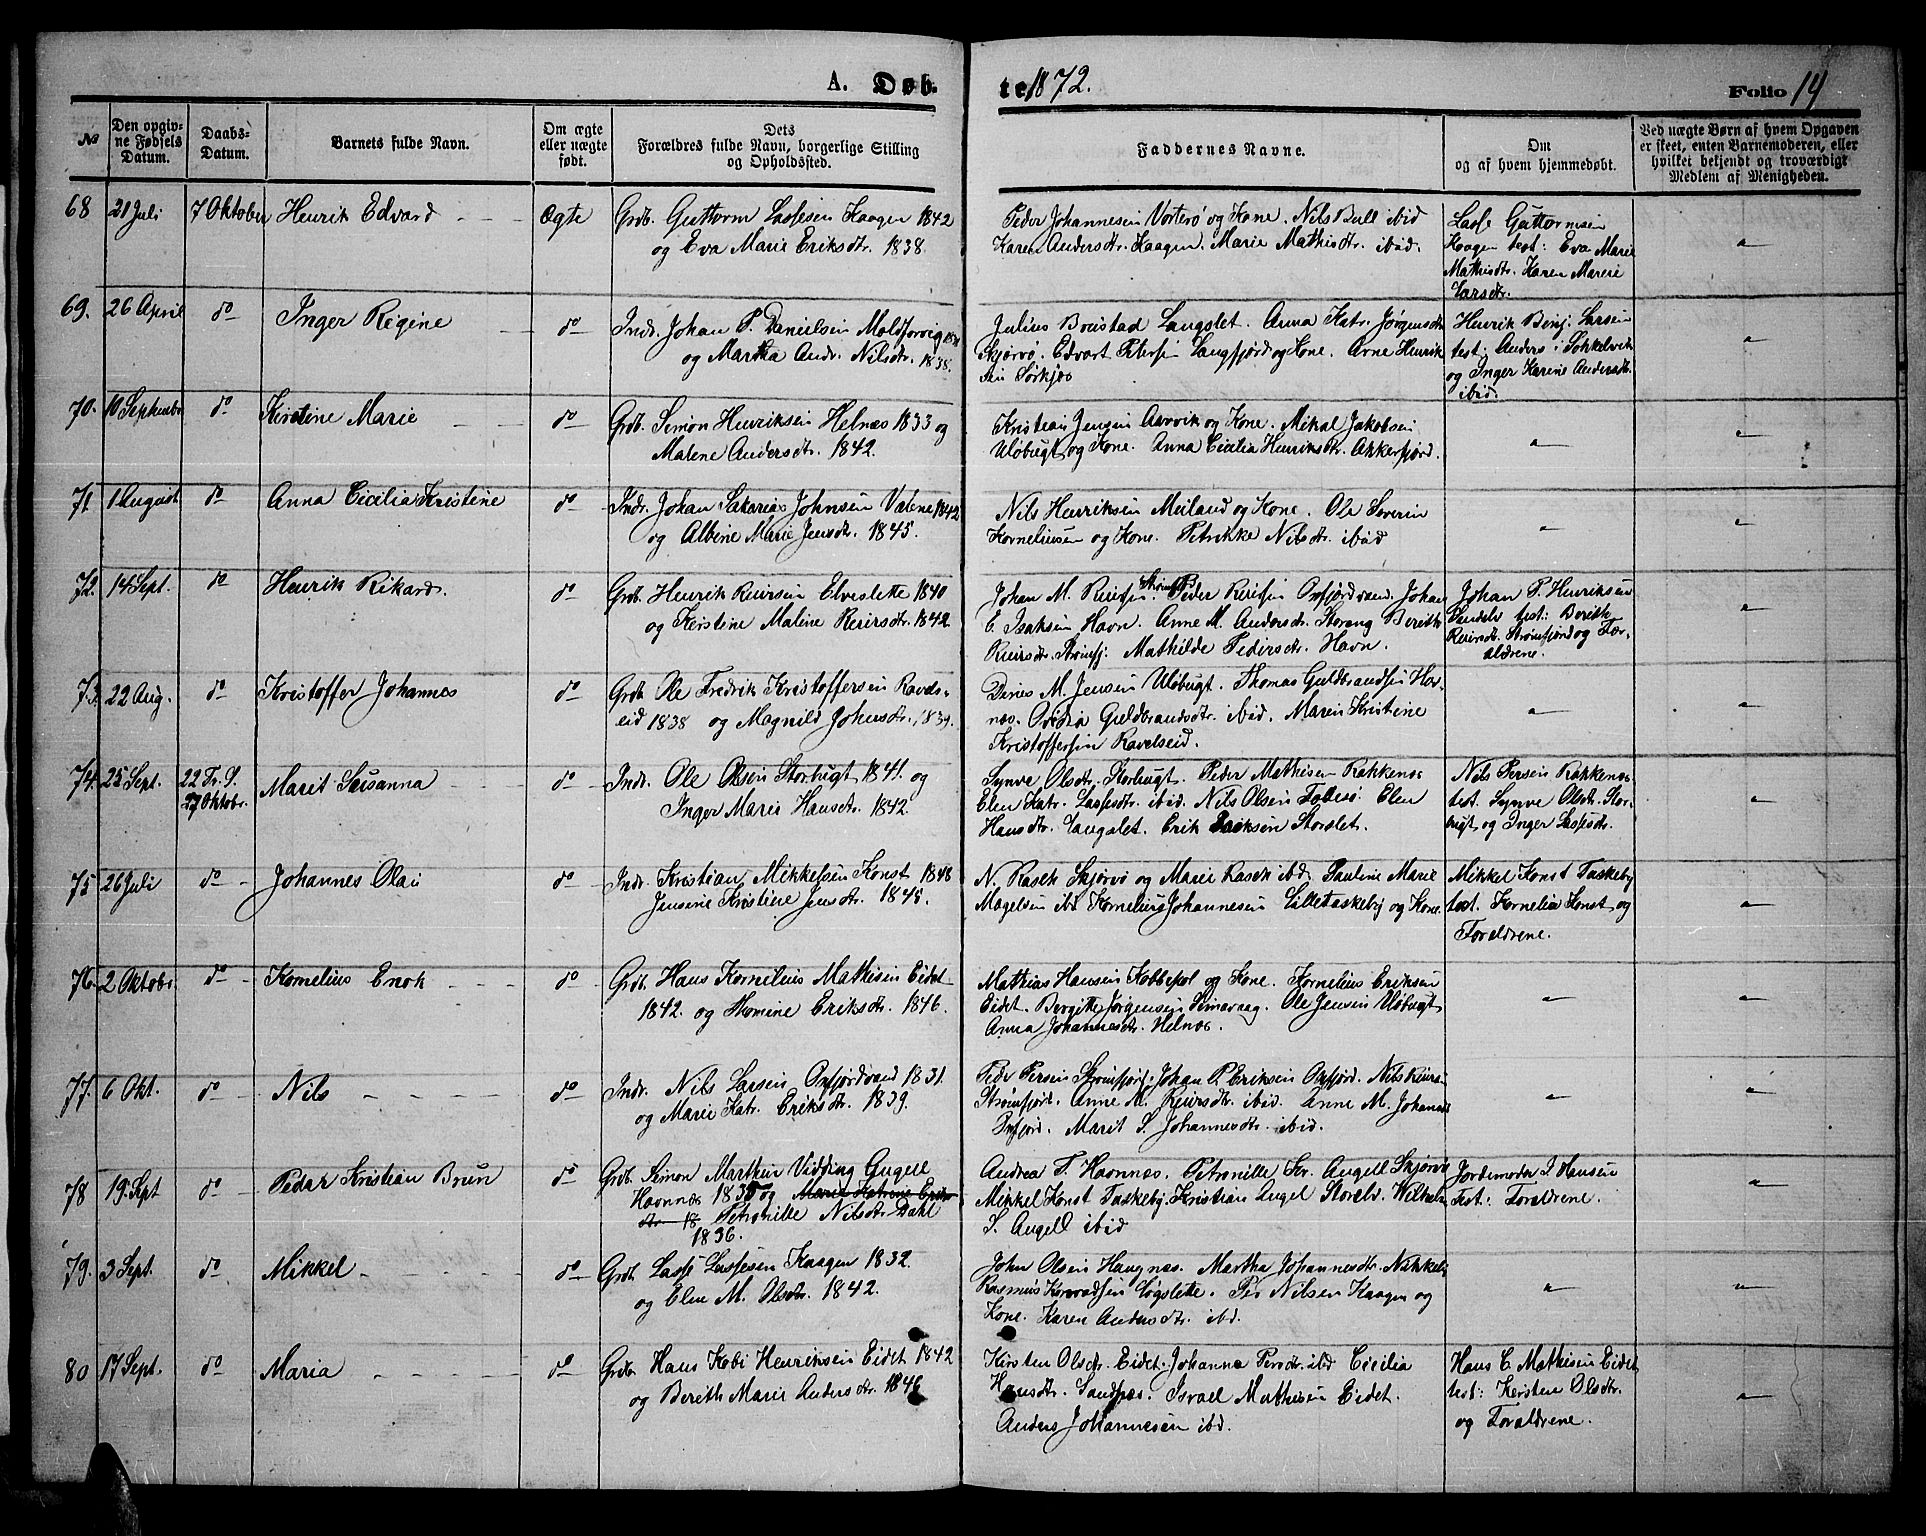 A. Døb-
te 1872.
Folio 14
No
Den opgiv-
ne Fødsels
Datum.
Daabs-
Datum.
Barnets fulde Navn.
Om ægte
eller uægte
født.
Dets
Forældres fulde Navn, borgerlige Stilling
og Opholdssted.
Faddernes Navne.
Om
og af hvem hjemmedøbt.
Ved uægte Børn af hvem Opgaven
er skeet, enten Barnemoderen, eller
hvilket bekjendt og troværdigt
Medlem af Menigheden.
68 21 Juli 7 Oktober Henrik Edvard Ægte Grdb. Guttorm Lassesen Kaagen 1842
og Eva Marie Eriksdtr. 1838.
Peder Johannesen Vorterø og Kone. Nils Bull ibid
Karen Andersdtr. Kaagen. Marie Mathisdtr. ibid.
Lasse Guttormsen
Kaagen test: Eva Marie
Mathisdtr. Karen Marie
Larsdtr.
69. 26 April do Inger Regine do Indr. Johan P. Danielsen Maldforvig
og Martha Andr. Nilsdtr. 1838.
Julius Boustad Langslet. Anna Katr. Jørgensdtr
Skjørvø. Edvart Petersen Langfjord og Kone. Arne Henrik
sen Sørkjos
Henrik Benj. Larsen
test: Anders i Sokkelvik
og Inger Karine Andersdtr.
ibid.
70. 10 Septembr do Kirstine Marie do Grdb. Simon Henriksen Helnæs 1833 og
Malene Andersdtr. 1842.
Kristian Jensen Aarvik og Kone. Mikal Jakobsen
Uløbugt og Kone. Anna Cecilia Henriksdtr. Akkarfjord.
71 1 August do Anna Cicilia Kristine do Indr. Johan Sakarias Johnsen Valene 1842
og Albine Marie Jensdtr. 1845.
Nils Henriksen Meiland og Kone. Ole Severin
Korneliusen og Kone. Petrikke Nilsdtr. ibid
72. 14 Sept. do Henrik Rikard. do Grdb. Henrik Reiersen Elveslette 1840
og Kirstine Maline Reiersdtr. 1842.
Johan M. Reiersen Strømfjord. Peder Reiersen Oxfjordvand. Johan
E. Isaksen Havn. Anne M. Andersdtr. Storeng Berith
Reiersdtr. Strømfj. Mathilde Pedersdtr. Havn.
Johan P. Henriksen
test: Berith
Reiersdtr. Strømfjord og For-
ældrene.
73. 22 Aug. do Kristoffer Johannes do Grdb. Ole Fredrik Kristoffersen Ravels-
eid 1838 og Magnild Johnsdtr. 1839.
Dines M. Jensen Uløbugt. Thomas Guldbrandsen Hav-
næs. Ovidia Guldbrandsdtr. ibid. Maren Kristine
Kristoffersen Ravelseid.
74. 25 Sept. 22 Tr. S.
27 Oktobr. Marit Susanna do Indr. Ole Olsen Storbugt 1841. og
Inger Marie Hansdtr. 1842.
Synve Olsdtr. Storbugt. Peder Mathisen Rakkenæs
Elen Katr. Lassesdtr. ibid. Nils Olsen Follesø. Elen
Hansdtr. Langslet. Erik Isaksen Storslet.
Nils Persen Rakkenæs
test. Synve Olsdtr. Stor-
bugt og Inger Lassesdtr.
75 26 Juli do Johannes Olai do Indr. Kristian Mikkelsen Konst 1848
Jensine Kristine Jensdtr. 1845.
N. Rasch Skjørvø og Marie Rasch ibid. Pauline Marie
Magelsen ibd Kornelius Johannesen Lilletaskeby og Kone.
Mikkel Konst Taskeby
test. Kornelia Konst og
Forældrene.
76. 2 Oktobr. do Kornelius Enok do Grdb. Hans Kornelius Mathisen Eidet
1842. og Homine Eriksdtr. 1846.
Mathias Hansen Kobbepol og Kone. Kornelius Eriksen
Eidet. Bergitte Jørgensen Semeraag. Ole Jensen Uløbugt
Anna Johannesdtr. Helnæs.
77. 6 Okt. do Nils do Indr. Nils Larsen Oxfjordvand 1831.
og Marie Katr. Eriksdtr. 1839.
Peder Persen Strømfjord. Johan P. Eriksen Oxfjord. Nils Reiers
Strømfjord. Anne M. Reiersdtr. ibid. Anne M. Johans
Oxfjord. Marit S. Johannesdtr. ibid.
78 19 Sept do Peder Kristian Brun do Grdb. Simon Marthin Vidding Angell
Havnnæs 1835 og Marie Katrine Eriks-
dtr. 18 Petronille Nilsdtr. Dahl
1836.
Andrea F. Havnnæs. Petronille Sr. Angell Skjørvø
Mikkel Konst Taskeby. Kristian Angel Storelv. Wilhelm
S. Angell ibid
Jordemoder I. Hansen
Test: Forældrene.
79. 3 Sept. do Mikkel do Grdb. Lasse Lassesen Kaagen 1832.
og Elen M. Olsdtr. 1842.
John Olsen Haugnæs. Martha Johannesdtr. Nikkeby
Rasmus Konradsen Løgslette. Per Nilsen Kaagen og
Kone. Karen Andersdtr. ibd.
80 17 Sept. do Maria do Grdb. Hans Kobi Henriksen Eidet 1842
og Berith Marie Andersdtr. 1846
Kirsten Olsdtr. Eidet. Johanna Persdtr. ibid Cicilia
Hansdtr. Sandnæs. Israel Mathisen Eidet.
Anders Johannesen ibd.
Hans C. Mathisen Eidet
test: Kersten Olsdtr.
og Forældrene.